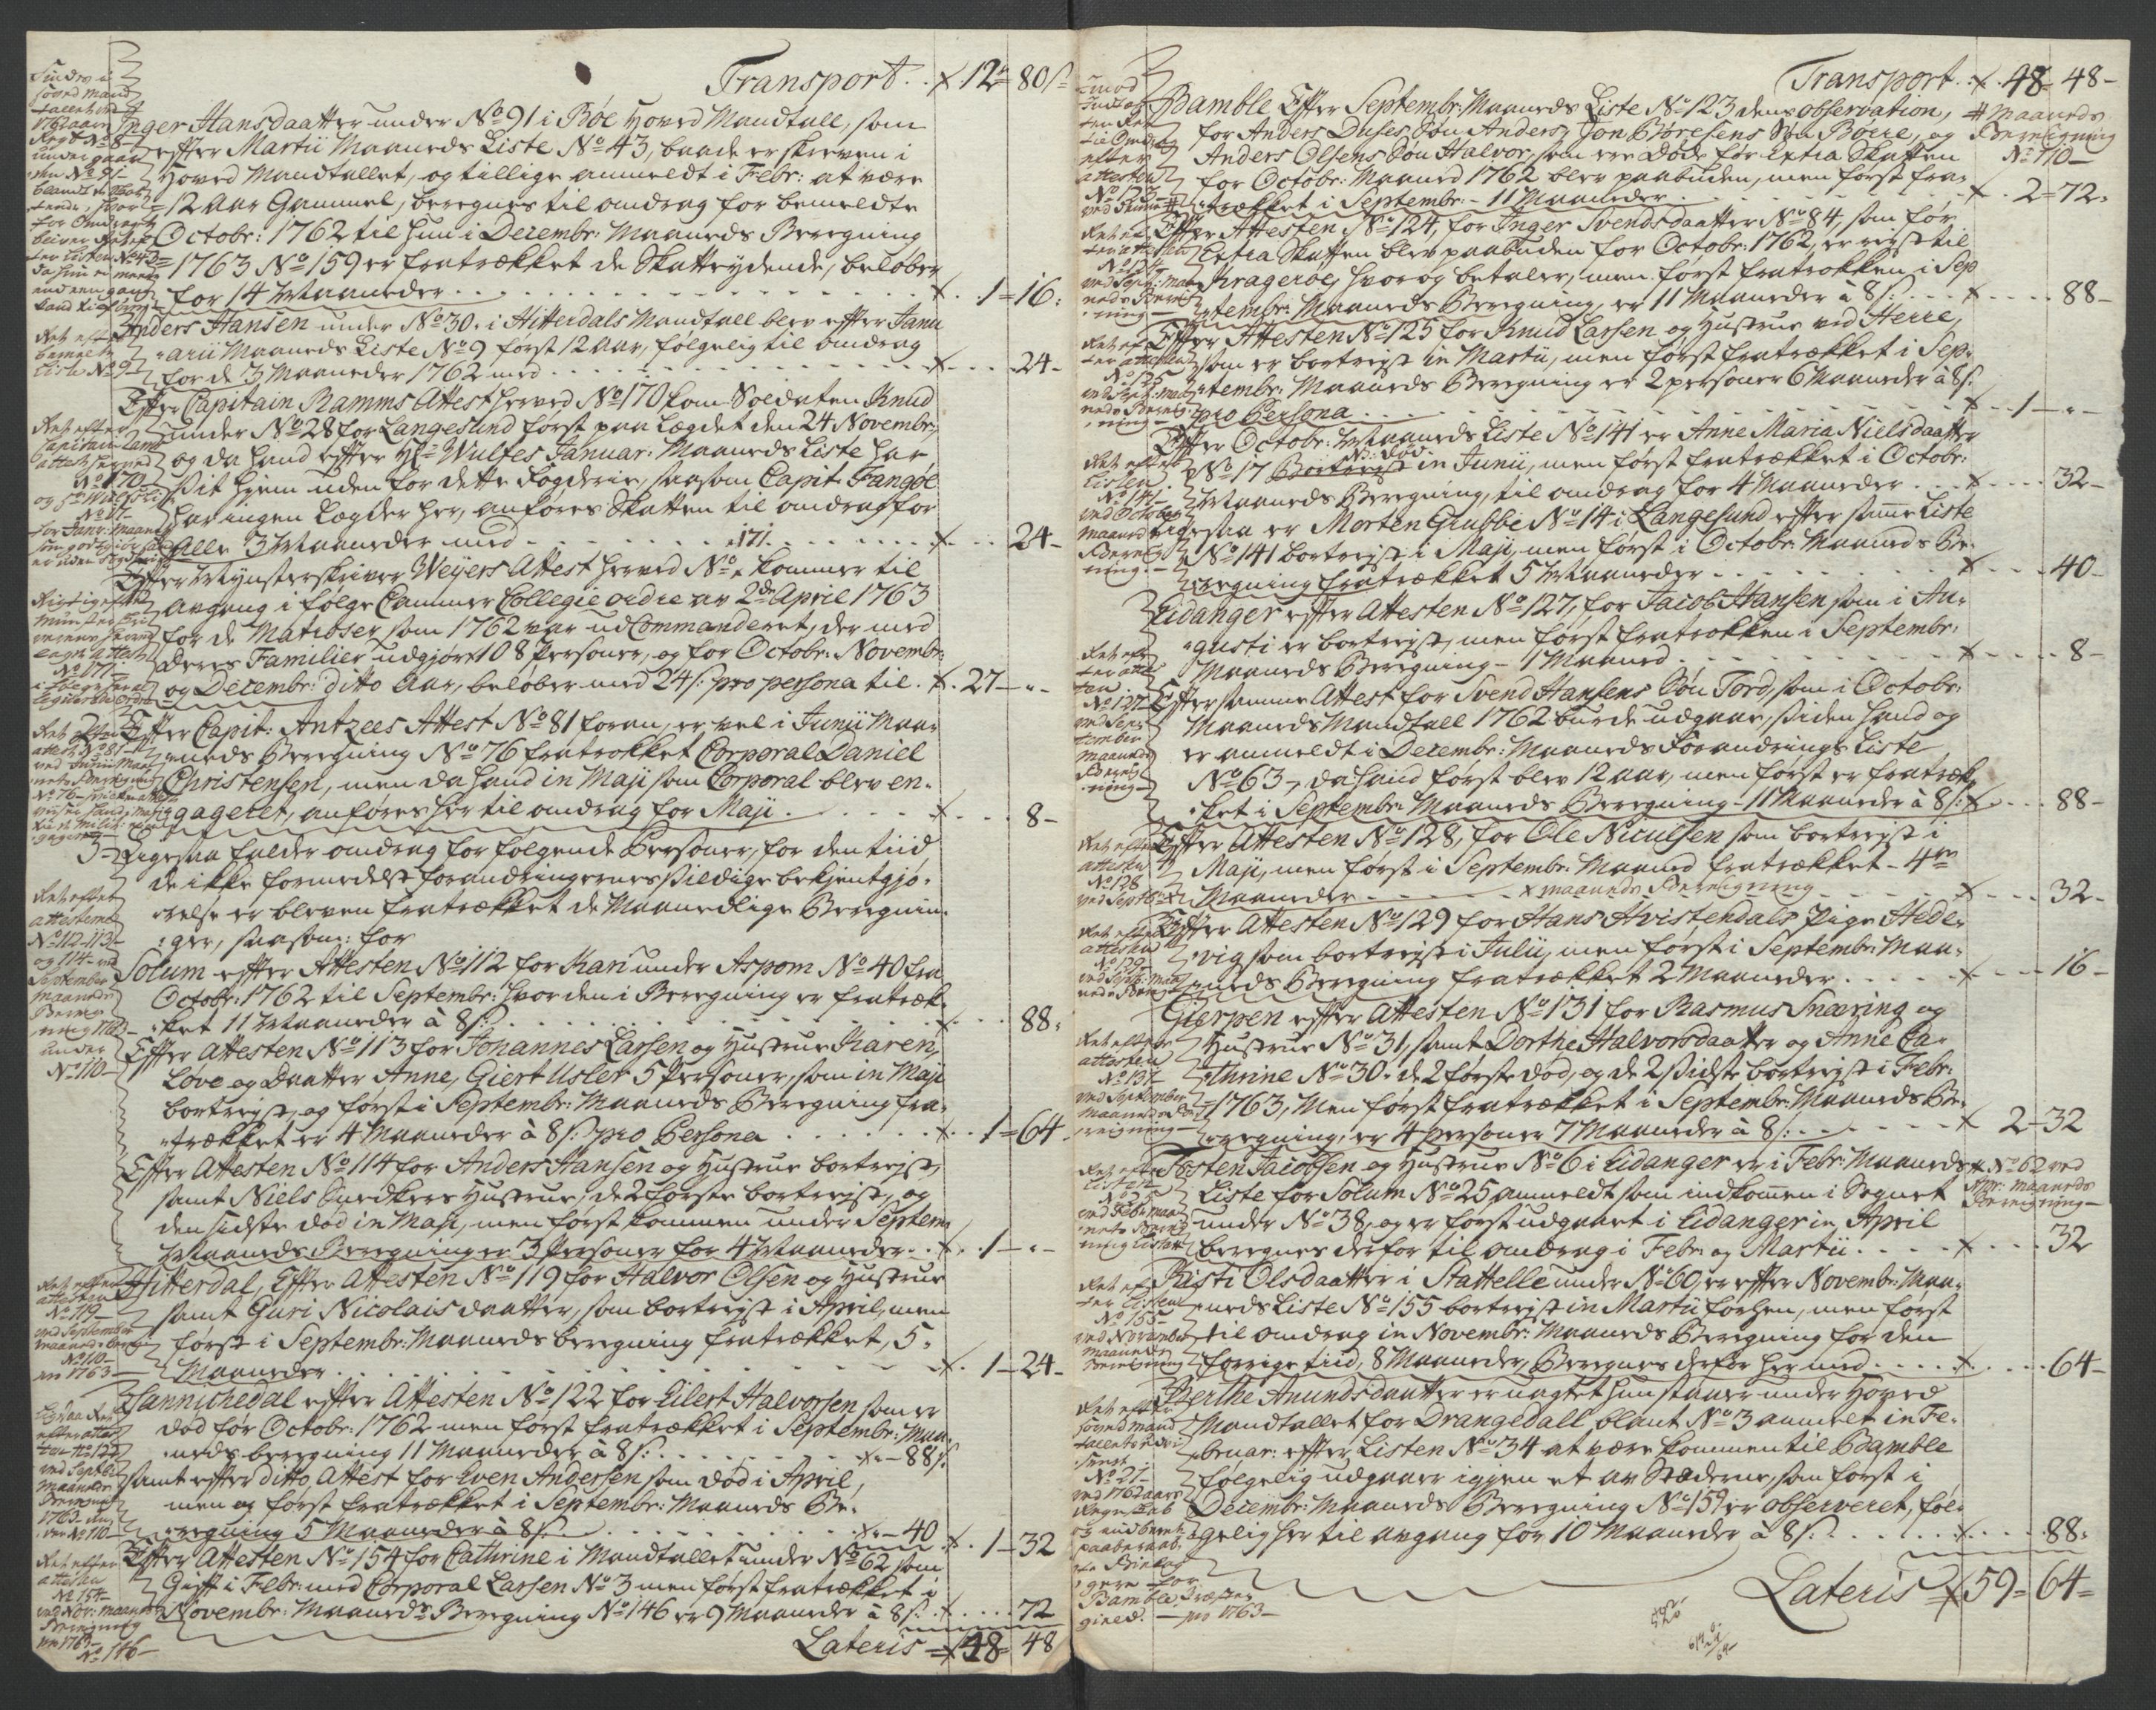 Transport . . ꝝ 12 = 80 ſ
Inger Hansdaatter under No 91 i Bøe Hoved Mandtall, som
efter Martii Maaneds Liste No 43, baade er skreven i
Hoved Mandtallet, og tillige anmeldt i Febr: at være
12 Aar Gammel, beregnes til omdrag for bemeldte
Octobr: 1762 til hun i Decembr: Maaneds Beregning
1763 No 159 er fratrækket de Skatteydende, beløber
for 14 Maaneder . . . 1 = 16:
Anders Hansen under No 30. i Hitterdals Mandtall blev efter Janu
arii Maaneds Liste No 9 først 12 Aar, følgelig til omdrag
for de 3 Maaneder 1762 med . . . 24 -
Efter Capitain Ramms Attest herved No 170 kom Soldaten Knud
under No 28 for Langesund først paa Lægdet den 24 Novembr:,
og da hand efter Hr Wulfes Januar: Maaneds Liste har
sit hjem uden for dette Fogderie, saasom Capit: Fangøe
har ingen Lægder her, anføres Skatten til omdrag for
alle 3 Maaneder med . . . 24 -
171.
Efter Mynsterskriver Weyers Attest herved No kommer til
avgang i følge Cammer Collegie ordre av 2de April 1763
for de Matroser, som 1762 var ud Commanderet, der med
deres Familier udgjør 108 Personer, og for Octobr: Novembr:
og Decembr: ditto Aar, beløber med 24 ſ: pro persona til . ꝝ. 27 - „ -
Efter Capit: Antzees Attest No 81 foran, er vel i Junii Maa-
neds Beregning No 76 fratrokket Corporal Daniel
Christensen, men da hand in Maji som Corporal blev en-
gageret, anføres her til omdrag for Maji . . . 8 -
Ligesaa falder omdrag for følgende Personer, for den tiid
de ikke formedelst forandringernes sildige bekjentgjø-
relse er bleven fratrækket de Maanedlige Beregnin-
ger, saasom: for
Solum efter Attesten No 112 for Kari under Aspom No 40 fra
Octobr: 1762 til Septembr: hvor den i Beregning er fratræk-
ket 11 Maaneder à 8 ſ: . . . 88:
Efter Attesten No 113 for Johannes Larsen og Hustrue Karen,
Løve og Daatter Anne, Giert Usler 5 Personer, som in Maji
bortreyst, og først i Septembr: Maaneds Beregning fra-
trækket er 4 Maaneder à 8 ſ: pro Persona . . . 1 = 64
Efter Attesten No 114 for Anders Hansen og Hustrue bortreyst,
samt Niels Snedkers Hustrue, de 2 første bortreyst, og
den sidste død in Maji, men først kommen under Septem
Maaneds Beregning er 3 Personer for 4 Maaneder . . 1 - „ -
Hitterdal, Efter Attesten No 119 for Halvor Olsen og Hustrue
samt Guri Nicolaisdaatter, som bortreyst i April, men
først i Septembr: Maaneds beregning fratrækket, 5-
Maaneder . . . 1 - 24 -
Sannichedal efter Attesten No 122 for Eilert Halvorsen som er
død før Octobr: 1762 men først fratrækket i Septembr: Maa-
neds beregning 11 Maaneder à 8 ſ: . . . 88 ſ:
samt efter ditto Attest for Even Andersen som død i April,
men og først fratrækket i Septembr: Maaneds Be-
regning 5 Maaneder à 8 ſ: . . . 40 ꝝ . 1 - 32
Efter Attesten No 154 for Cathrine i Mandtallet under No 62 som
Gift i Febr: med Corporal Larsen No 3 men først fratrækket i
Novembr: Maaneds Beregning No 146 er 9 Maaneder à 8 ſ: . . . 72
Lateris = ꝝ 48 = 48
Ret efter
bemelte
Liste No 9
Ret efter
attesterne
No 112-113-
og 114 ved
September
Maaneds
Bereg-
ning 1763
under
No 110 -
Ret efter
attesten
No 119 -
ved September
Maaneds Bereg-
No 110 -
pro 1763 -
Ret efter
attesten
No 154 -
ved Nov: Maaneds
Beregning
pro 1763
No 146 -
Transport . ꝝ . 48 = 48 -
Bamble Efter Septembr: Maaneds Liste No 123 dens observation,
for Anders Duses Søn Anders, Jon Børesens Søn Boere, og
Anders Olsens Søn Halvor, som ere døde før Extra Skatten
for Octobr: Maaned 1762 blev paabuden, men først fra-
trækket i Septembr: - 11 Maaneder . . . 2 = 72:
# Maaneds
Beregning
No 110 -
Efter Attesten No 124, for Inger Svendsdaatter No 84, som før
Extra Skatten blev paabuden for Octobr: 1762, er reyst til
Krageröe, hvor og betaler, men først fratrokken i Sep
tembr: Maaneds Beregning, er 11 Maaneder à 8 ſ: . . . 88 -
Efter Attesten No 125 for Knud Larsen og Hustrue ved Herre,
som er bortreyst in Martii, men først fratrækket i Sep-
tembr: Maaneds Beregning er 2 personer 6 Maaneder à 8 ſ:
pro Persona . . . 1 - „ -
Efter Octobr: Maaneds Liste No 141 er Anne Maria Nielsdaatter
No 17 Bortreyst in Junii, men først fratrækket i Octobr:
Maaneds Beregning, til omdrag for 4 Maaneder . . . 32 -
Ligesaa er Morten Grubbe No 14 i Langesund efter samme Liste
No 141 bortreyst i Maji, men først i Octobr: Maaneds Be-
regning fratrækket 5 Maaneder . . . 40 -
Eidanger efter Attesten No 127, for Jacob Hansen som i Au-
gusti er bortreyst, men først fratrokken i Septembr:
Maaneds Beregning - 1 Maaned . . . 8 -
Efter samme Attest for Svend Hansens Søn Tord, som i Octobr:
Maaneds Mandtall 1762 burde udgaae, siden hand og
er anmeldt i Decembr: Maaneds Forandrings Liste
No 63 -, da hand først blev 12 Aar, men først er fratræk-
ket i Septembr: Maaneds Beregning - 11 Maaneder à 8 ſ: . . . 88 -
Efter Attesten No 128, for Ole Niculsen som bortreyst i
Maji, men først i Septembr: Maaned fratrækket - 4re
Maaneder . . . 32 -
x Maaneds Beregning
Efter Attesten No 129 for Hans Hvistendals Pige Hede-
vig som bortreyst i Julii, men først i Septembr: Maa-
neds Beregning fratrækket 2 Maaneder . . . 16 -
Gierpen efter Attesten No 131 for Rasmus Snæring og
Hustrue No 31, samt Dorthe Halvorsdaatter og Anne Ca-
thrine No 30. de 2 første død, og de 2 sidste bortreyst i Febr:
1763, Men først fratrækket i Septembr: Maaneds Be-
regning, er 4 personer 7 Maaneder à 8 ſ: . . . 2 - 32
Tosten Jacobsen og Hustrue No 6 i Eidanger er i Febr: Maaneds
Liste for Solum No 25 anmeldt som indkommen i Sognet
under No 38, og er først udgaaet i Eidanger in April
beregnes derfor til omdrag i Febr: og Martii . . . 32
# No 62 ved
Apr: Maaneds
Beregning -
Kisti Olsdaatter i Stattelle under No 60, er efter Novembr: Maa-
neds Liste No 155 bortreyst in Martii forhen, men først
til omdrag in Novembr: Maaneds Beregning for den
forrige tiid, 8 Maaneder, Beregnes derfor her med . . . 64 -
Berthe Anundsdaatter er uagtet hun staaer under Hoved
Mandtallet for Drangedall blant No 3 anmelt in Fe-
bruar: efter Listen No 34 at være kommen til Bamble
følgelig udgaaer igjen et av Stæderne, som først i
Decembr: Maaneds Beregning No 159 er observeret, føl-
gelig her til avgang for 10 Maaneder à 8 ſ: . . . 88:
Lateris ꝝ 59 = 64 =
Ret efter
attesten
No 128
Ret efter
attesten
No 131
ved September
Maaneds Be-
regning -